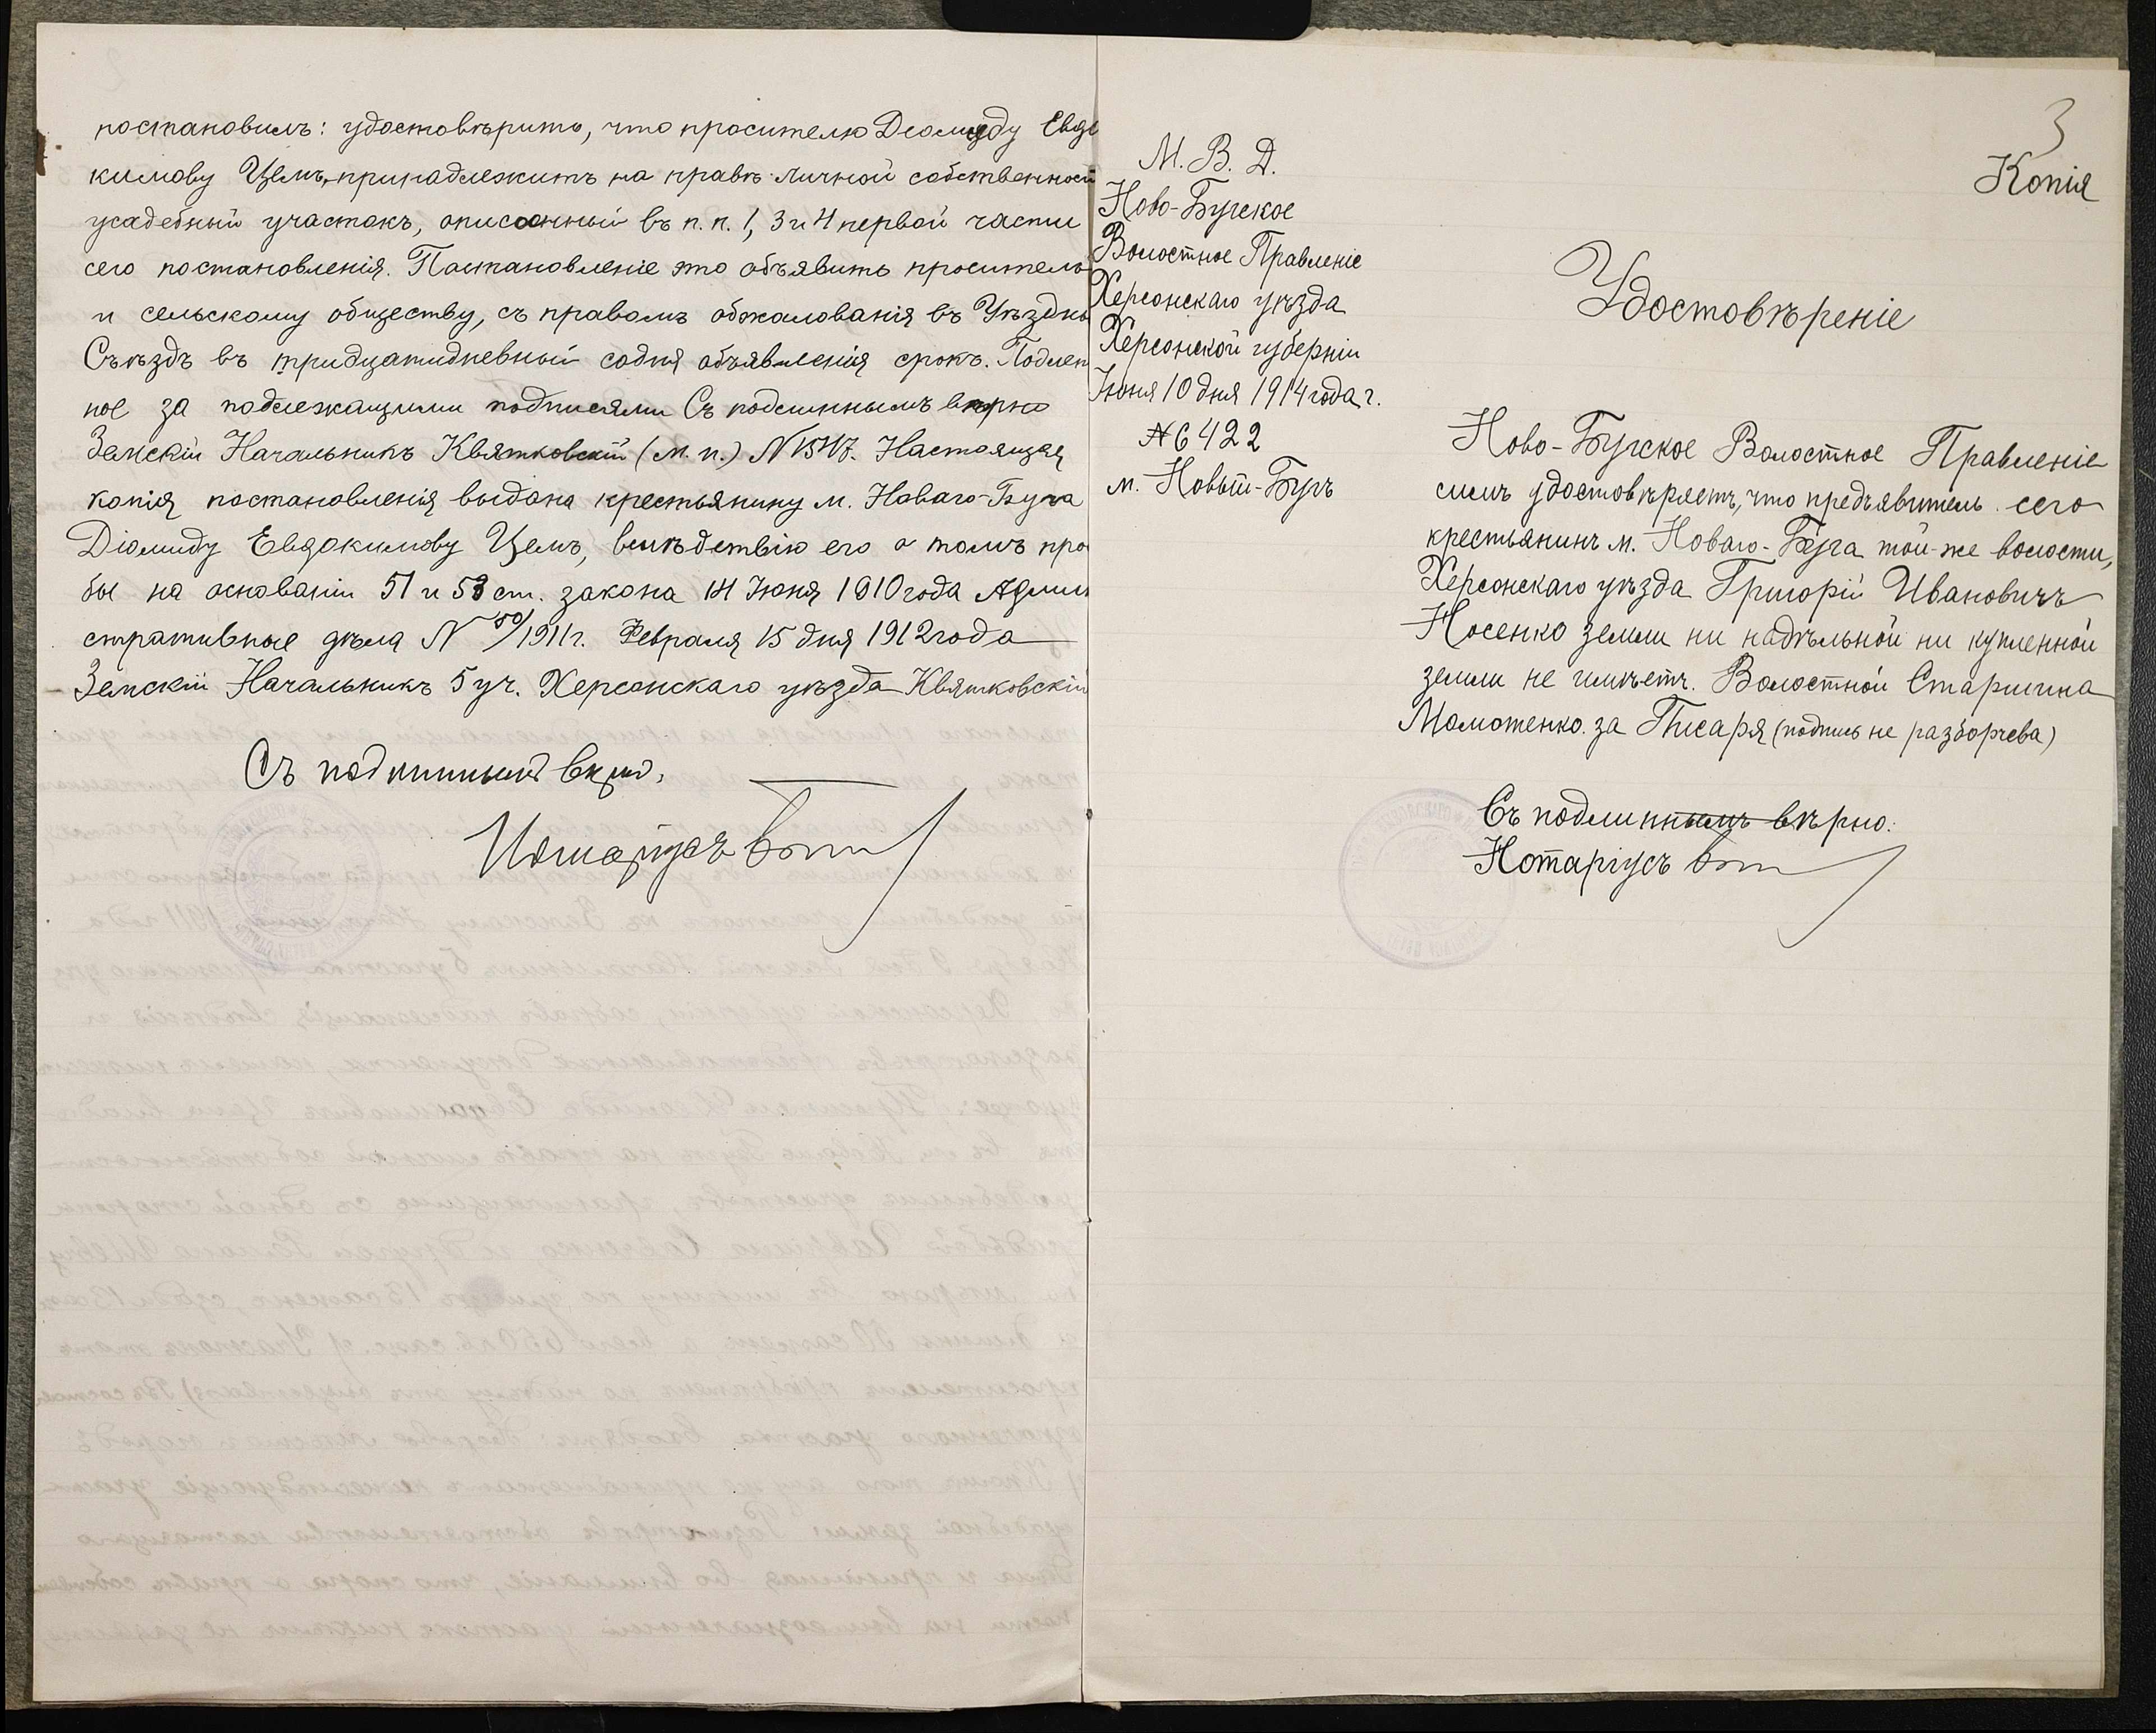 постановилъ: удостовѣрить, что просителю Діомиду Евдо
кимову Цемъ, принадлежитъ на правѣ личной собственност
усадебный участокъ, описанный въ п. п. 1, 3 и 4 первой части
сего постановленія. Постановленіе это объявить просителю
и сельскому обществу, съ правомъ обжалованія въ Уѣздны
Съѣздъ въ тридцатидневный содня объявленія срокъ. Подлен
ное за подлежащими подписями Съ подлиннымъ вѣрно
Земскій Начальникъ Квятковскій (м. п.) Настоящая
копія постановленія выдана крестьянину м. Новаго-Буга
Діомиду Евдокимову Цемъ, вслѣдствію его о томъ про
бы на основаніи 51 и 53 ст. закона 14 Іюня 1910 года Админ
стративные дѣла N 50/1911 г. Февраля 15 дня 1912 года
Земскій Начальникъ 5 уч. Херсонскаго уѣзда Квятковскій
Съ подлиннымъ вѣрно,
Нотаріусъ
3
Копія
М. В. Д.
Ново-Бугское
Волостное Правленіе
Херсонскаго уѣзда
Херсонской губерніи
Іюня 10 дня 1914 года г.
№ 6422
м. Новый-Бугъ
Удостовѣреніе
Ново-Бугское Волостное Правленіе
симъ удостовѣряетъ, что предъявитель сего
крестьянинъ м. Новаго-Буга той-же волости,
Херсонскаго уѣзда Григорій Ивановичъ
Носенко земли ни надѣльной ни купленной
земли не имѣетъ. Волостной Старшина
Момотенко. за Писаря (подпись не разборчева)
Съ подлиннымъ вѣрно:
Нотаріусъ